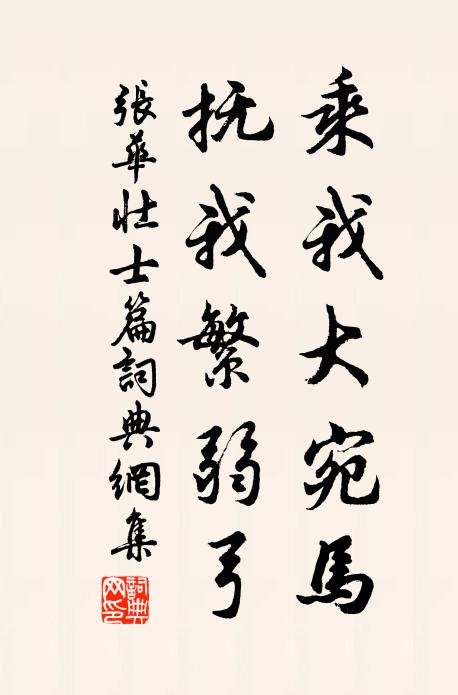 乘我大宛馬
抚我繁弱弓
張華壮士篇詞典網集
詞典网印